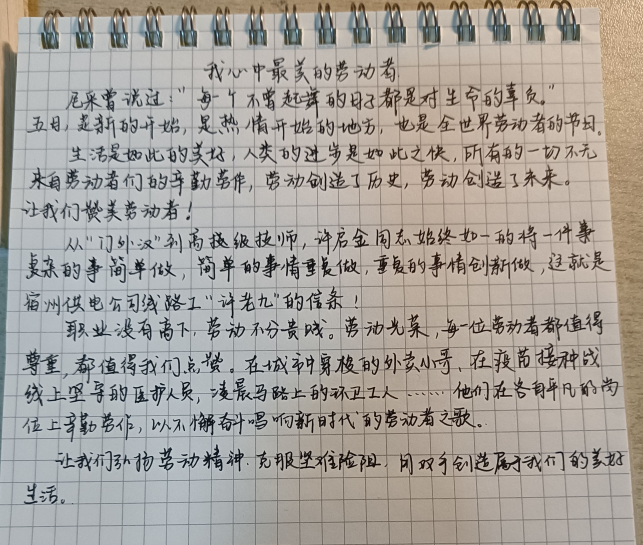 我心中最美的劳动者
尼采曾说过:“每一个不曾起舞的日子都是对生命的辜负。”
五月,是新的开始,是热情开始的地方,也是全世界劳动者的节日。
生活是如此的美好,人类的进步是如此之快,所有的一切不无
来自劳动者们的辛勤劳作,劳动创造了历史,劳动创造了未来。
让我们赞美劳动者!
从“门外汉”到高技级技师,许启金同志始终如一的将一件事
复杂的事简单做,简单的事情重复做,重复的事情创新做,这就是
宿州供电公司线路工“许老九”的信条!
职业没有高下,劳动不分贵贱。劳动光荣,每一位劳动者都值得
尊重,都值得我们点赞。在城市中穿梭的外卖小哥、在疫苗接种战
线上坚守的医护人员,凌晨马路上的环卫工人……他们在各自平凡的岗
位上辛勤劳作,以不懈奋斗唱响新时代的劳动者之歌。
让我们弘扬劳动精神、克服坚难险阻,用双手创造属于我们的美好
生活。